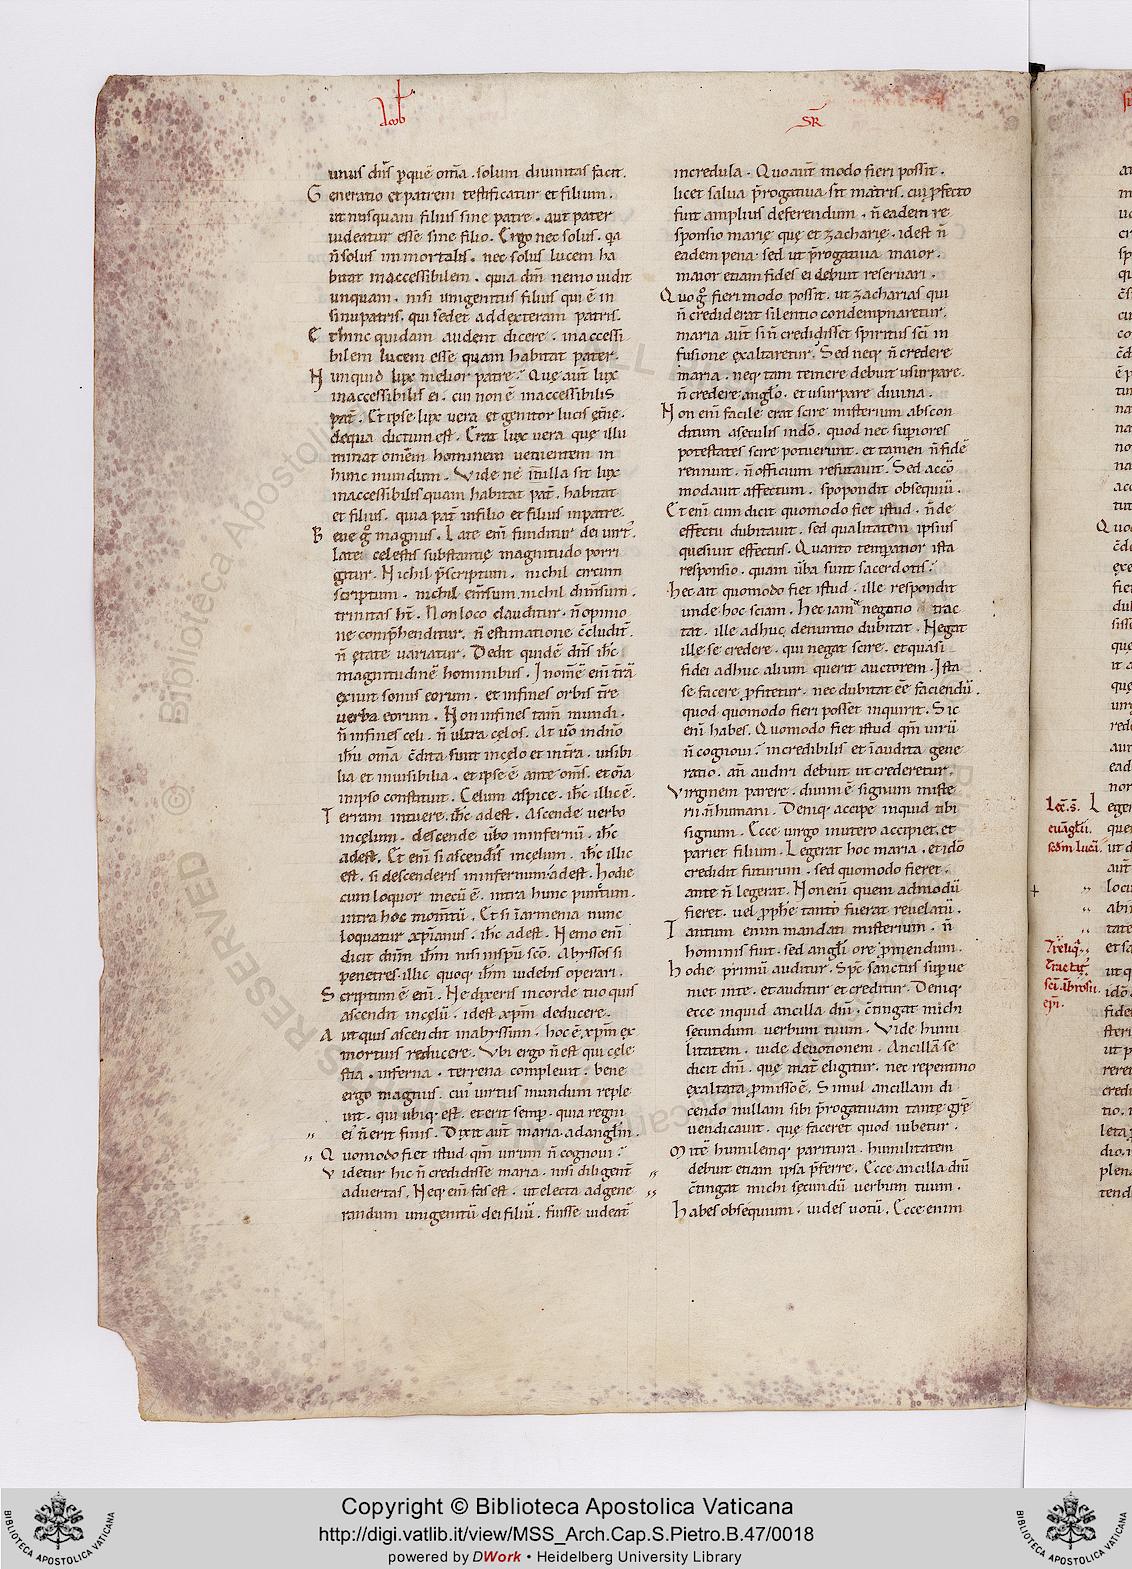 unus dn̄s ꝑ quē om̄a . solum diuinitas facit.
Generatio et patrem testificatur et filium .
ut nusquam filius sine patre . aut pater
uideatur esse sine filio . Ergo nec solus . qa
n̄ solus immortalis . nec solus lucem ha
bitat inaccessibilem . quia dm̄ nemo uidit
unquam . nisi unigenitus filius qui ē in
sinu patris . qui sedet ad dexteram patris.
Et hinc quidam audent dicere . inaccessi
bilem lucem esse quam habitat pater.
Nunquid lux melior patre? Que aut̄ lux
inaccessibilis ei . cui non ē inaccessibilis
pat̄ . Et ipse lux uera et genitor lucis et̄ne .
de qua dictum est . Erat lux uera que illu
minat omēm hominem uenientem in
hunc mundum . Vide ne in̄ illa sit lux
inaccessibilis quam habitat pat̄ . habitat
et filius . quia pat̄ in filio et filius in patre.
Bene gͦ magnus . Late enī funditur dei uirt̄.
Late celestis substantię magnitudo porri
gitur . Nichil p̄scriptum . nichil circum
scriptum . nichil em̄sum . nichil dim̄sum .
trinitas ht̄ . Non loco clauditur . n̄ opinio
ne comp̄henditur . n̄ estimatione c̄cludit̄ .
n̄ ętate uariatur . Dedit quidē dn̄s ih̄c
magnitudinē hominibus . In om̄ē enī t̄rā
exiuit sonus eorum . et in fines orbis t̄re
uerba eorum . Non in fines tam̄ mundi .
n̄ in fines celi . n̄ ultra cęlos . At uͦ in dn̄o
ih̄u om̄a c̄dita sunt in cęlo et in t̄ra . uisibi
lia et inuisibilia . et ipse ē ante om̄s . et om̄a
in ipso constituit . Celum aspice . ih̄c illic ē .
Terram intuere . ih̄c adest . Ascende uerbo
in celum . descende ūbo in infernū . ih̄c
adest . Et enī si ascendis in celum . ih̄c illic
est . si descenderis in infernum adest . Hodie
cum loquor mecū ē . intra hunc punctum .
intra hoc mom̄tū . Et si in armenia nunc
loquatur xp̄ianus . ih̄c adest . Nemo enī
dicit dn̄m ih̄m nisi in sp̄u sc̄o . Abyssos si
penetres . illic quoq; ih̄m uidebis operari .
Scriptum ē enī . Ne dixeris in corde tuo quis
ascendit in celū . id est xp̄m deducere .
Aut quis ascendit in abyssum . hoc ē xp̄m ex
mortuis reducere . Vbi ergo n̄ est qui cęle
stia . inferna . terrena compleuit . bene
ergo magnus . cui uirtus mundum reple
uit . qui ubiq; est . et erit semp̄ . quia regni
ei' n̄ erit finis . Dixit aut̄ maria ad angl̄m .
Quomodo fiet istud . qm̄ uirum n̄ cognoui ?
Videtur hic n̄ credidisse maria . nisi diligent̄
aduertas . Neq; enī fas est . ut electa ad gene
randum unigenitū dei filiū . fuisse uideat̄
SR̄
incredula . Quo aut̄ modo fieri possit .
licet salua p̄rogatiua sit matris . cui ꝓfecto
fuit amplius deferendum . n̄ eadem re
sponsio marię quę et zacharię . id est n̄
eadem pena . sed ut p̄rogatiua maior .
maior etiam fides ei debuit reseruari .
Quo gͦ fieri modo possit . ut zacharias qui
n̄ crediderat silentio condempnaretur .
maria aut̄ si n̄ credidisset spiritus sc̄i in
fusione exaltaretur ? Sed neq; n̄ credere
maria . neq; tam temere debuit usurpare .
n̄ credere anglo . et usurpare diuina .
Non enī facile erat scire misterium abscon
ditum a seculis in dō . quod nec superiores
potestates scire potuerunt . et tamen n̄ fidē
rennuit . n̄ officium refutauit . Sed acco
modauit affectum . spopondit obsequiū .
Et enī cum dicit quomodo fiet istud . n̄ de
effectu dubitauit . sed qualitatem ipsius
quesiuit effectus . Quanto temperatior ista
responsio . quam ūba sunt sacerdotis ?
Hec ait quomodo fiet istud . ille respondit
unde hoc sciam . Hec iam negotio trac
tat . ille adhuc de nuntio dubitat . Negat
ille se credere . qui negat scire . et quasi
fidei adhuc alium querit auctorem . Ista
se facere ꝓfitetur . nec dubitat ēē faciendū .
quod quomodo fieri posset inquirit . Sic
enī habes . Quomodo fiet istud qm̄ uirū
n̄ cognoui ? incredibilis et inaudita gene
ratio . an̄ audiri debuit ut crederetur .
Virginem parere . diuini ē signum miste
rii . n̄ humani . Deniq; accipe inquid tibi
signum . Ecce uirgo in utero accipiet . et
pariet filium . Legerat hoc maria . et idō
credidit futurum . sed quomodo fieret .
ante n̄ legerat . Non enī quem admodū
fieret . uel ꝓph̄e tanto fuerat reuelatū .
Tantum enim mandati misterium . n̄
hominis fuit . sed angl̄i ore ꝓmendum .
Hodie primū auditur . Sp̄c sanctus superue
niet in te . et auditur et creditur . Deniq;
ecce inquid ancilla dn̄i . c̄tingat michi
secundum uerbum tuum . Vide humi
litatem . uide deuotionem . Ancillā se
dicit dn̄i . que mat̄ eligitur . nec repentino
exaltata ꝓmisso ē . Simul ancillam di
cendo nullam sibi p̄rogatiuam tante gr̄e
uendicauit . quę faceret quod iubetur .
Mitē humilemq; paritura . humilitatem
debuit etiam ipsa p̄ferre . Ecce ancilla dn̄i
c̄tingat michi secundū uerbum tuum .
Habes obsequium . uides uotū . Ecce enim
Copyright © Biblioteca Apostolica Vaticana
http://digi.vatlib.it/view/MSS_Arch.Cap.S.Pietro.B.47/0018
powered by DWork • Heidelberg University Library